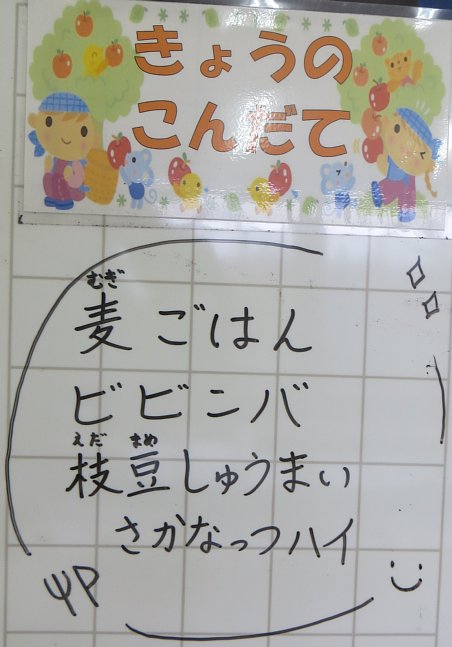 きょうの
こんだて
むぎ
麦ごはん
ビビンバ
えだ まめ
枝豆しゅうまい
さかなっつハイ